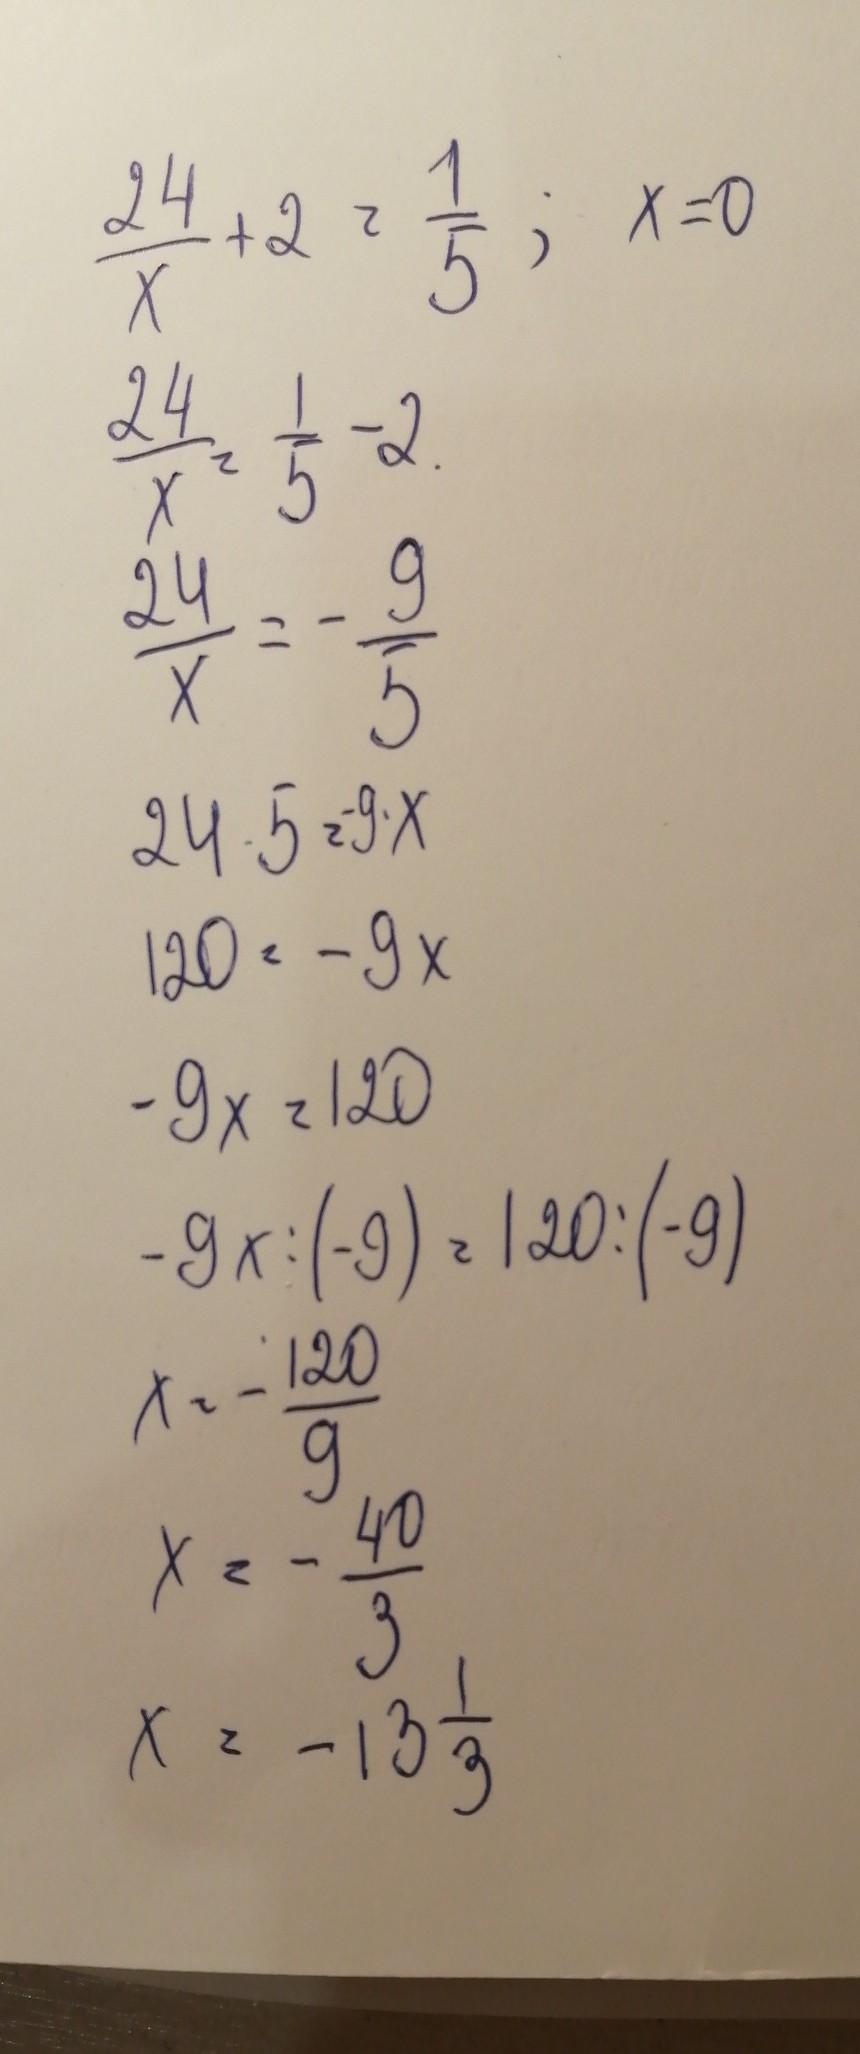 24/x + 2 = 1/5 ; x = 0
24/x = 1/5 - 2.
24/x = - 9/5
24 · 5 = -9 · x
120 = - 9x
-9x = 120
-9x : (-9) = 120 : (-9)
x = - 120/9
x = - 40/3
x = - 13 1/3